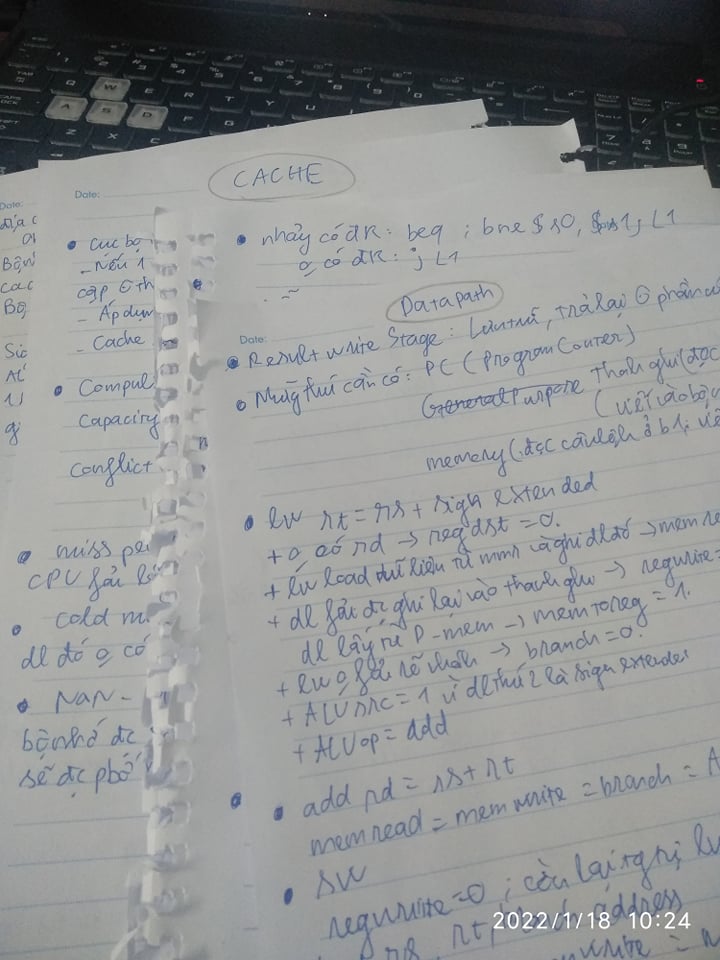 CACHE
Date:
Date:
Date:
địa c
Bộ n
các
Bộ
Số
AL
1J
gj
• cục bộ
- Nếu 1
cấp 6 th
- Áp dụn
- Cache
• Compul
Capacity
Conflict
• miss pe
CPU fải l
• cold m
dl đó o có
• NaN -
bộ nhớ đc
sẽ đc pbố
• nhảy có đk: beq ; bne $s0, $s1, L1
o có đk: j L1
Datapath
Date:
• Result write Stage: Lưu trữ, trả lại
• Những thứ cần có: PC (Program Couter)
General Purpose Thanh ghi (đọc
(viết vào bộ n
memory (đọc câu lệnh ở b1, viế
• lw rt = rs + sign extended
+ o có rd → regdst = 0.
+ lw load dữ liệu từ mmr và ghi dl đó → memre
+ dl fải đc ghi lại vào thanh ghi → regwrite =
dl lấy từ D-mem → memtoreg = 1.
+ lw o fải rẽ nhánh → branch = 0.
+ ALUsrc = 1 vì dl thứ 2 là sign extended
+ ALUop = add
• add rd = rs + rt
memread = memwrite = branch = A
• sw
regwrite = 0 ; còn lại
address
2022/1/18 10:24